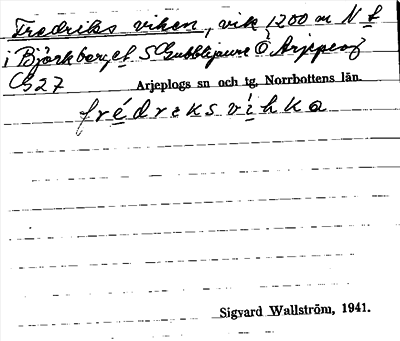 Fredriks viken, vik 1200 m N t
i Björkberget S Gubblijaure Ö Arjeplog
C527
Arjeplogs sn och tg, Norrbottens län.
frédreksvihka
Sigvard Wallström, 1941.